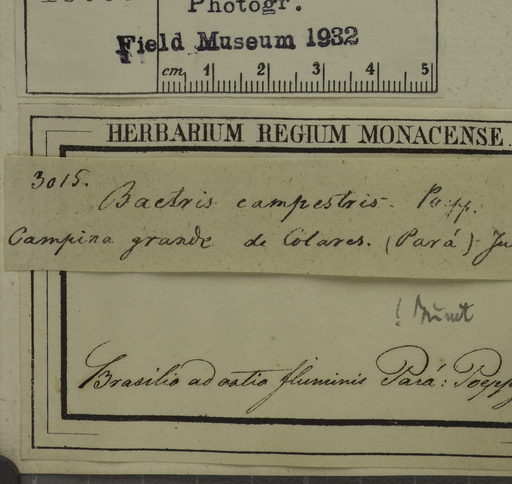 Photogr.
Field Museum 1932
cm 1 2 3 4 5
HERBARIUM REGIUM MONACENSE.
3015.
Bactris campestris. Poepp.
Campina grande de Colares. (Pará) Ju
! Burret
Brasilia ad ostio fluminis Pará: Poepp